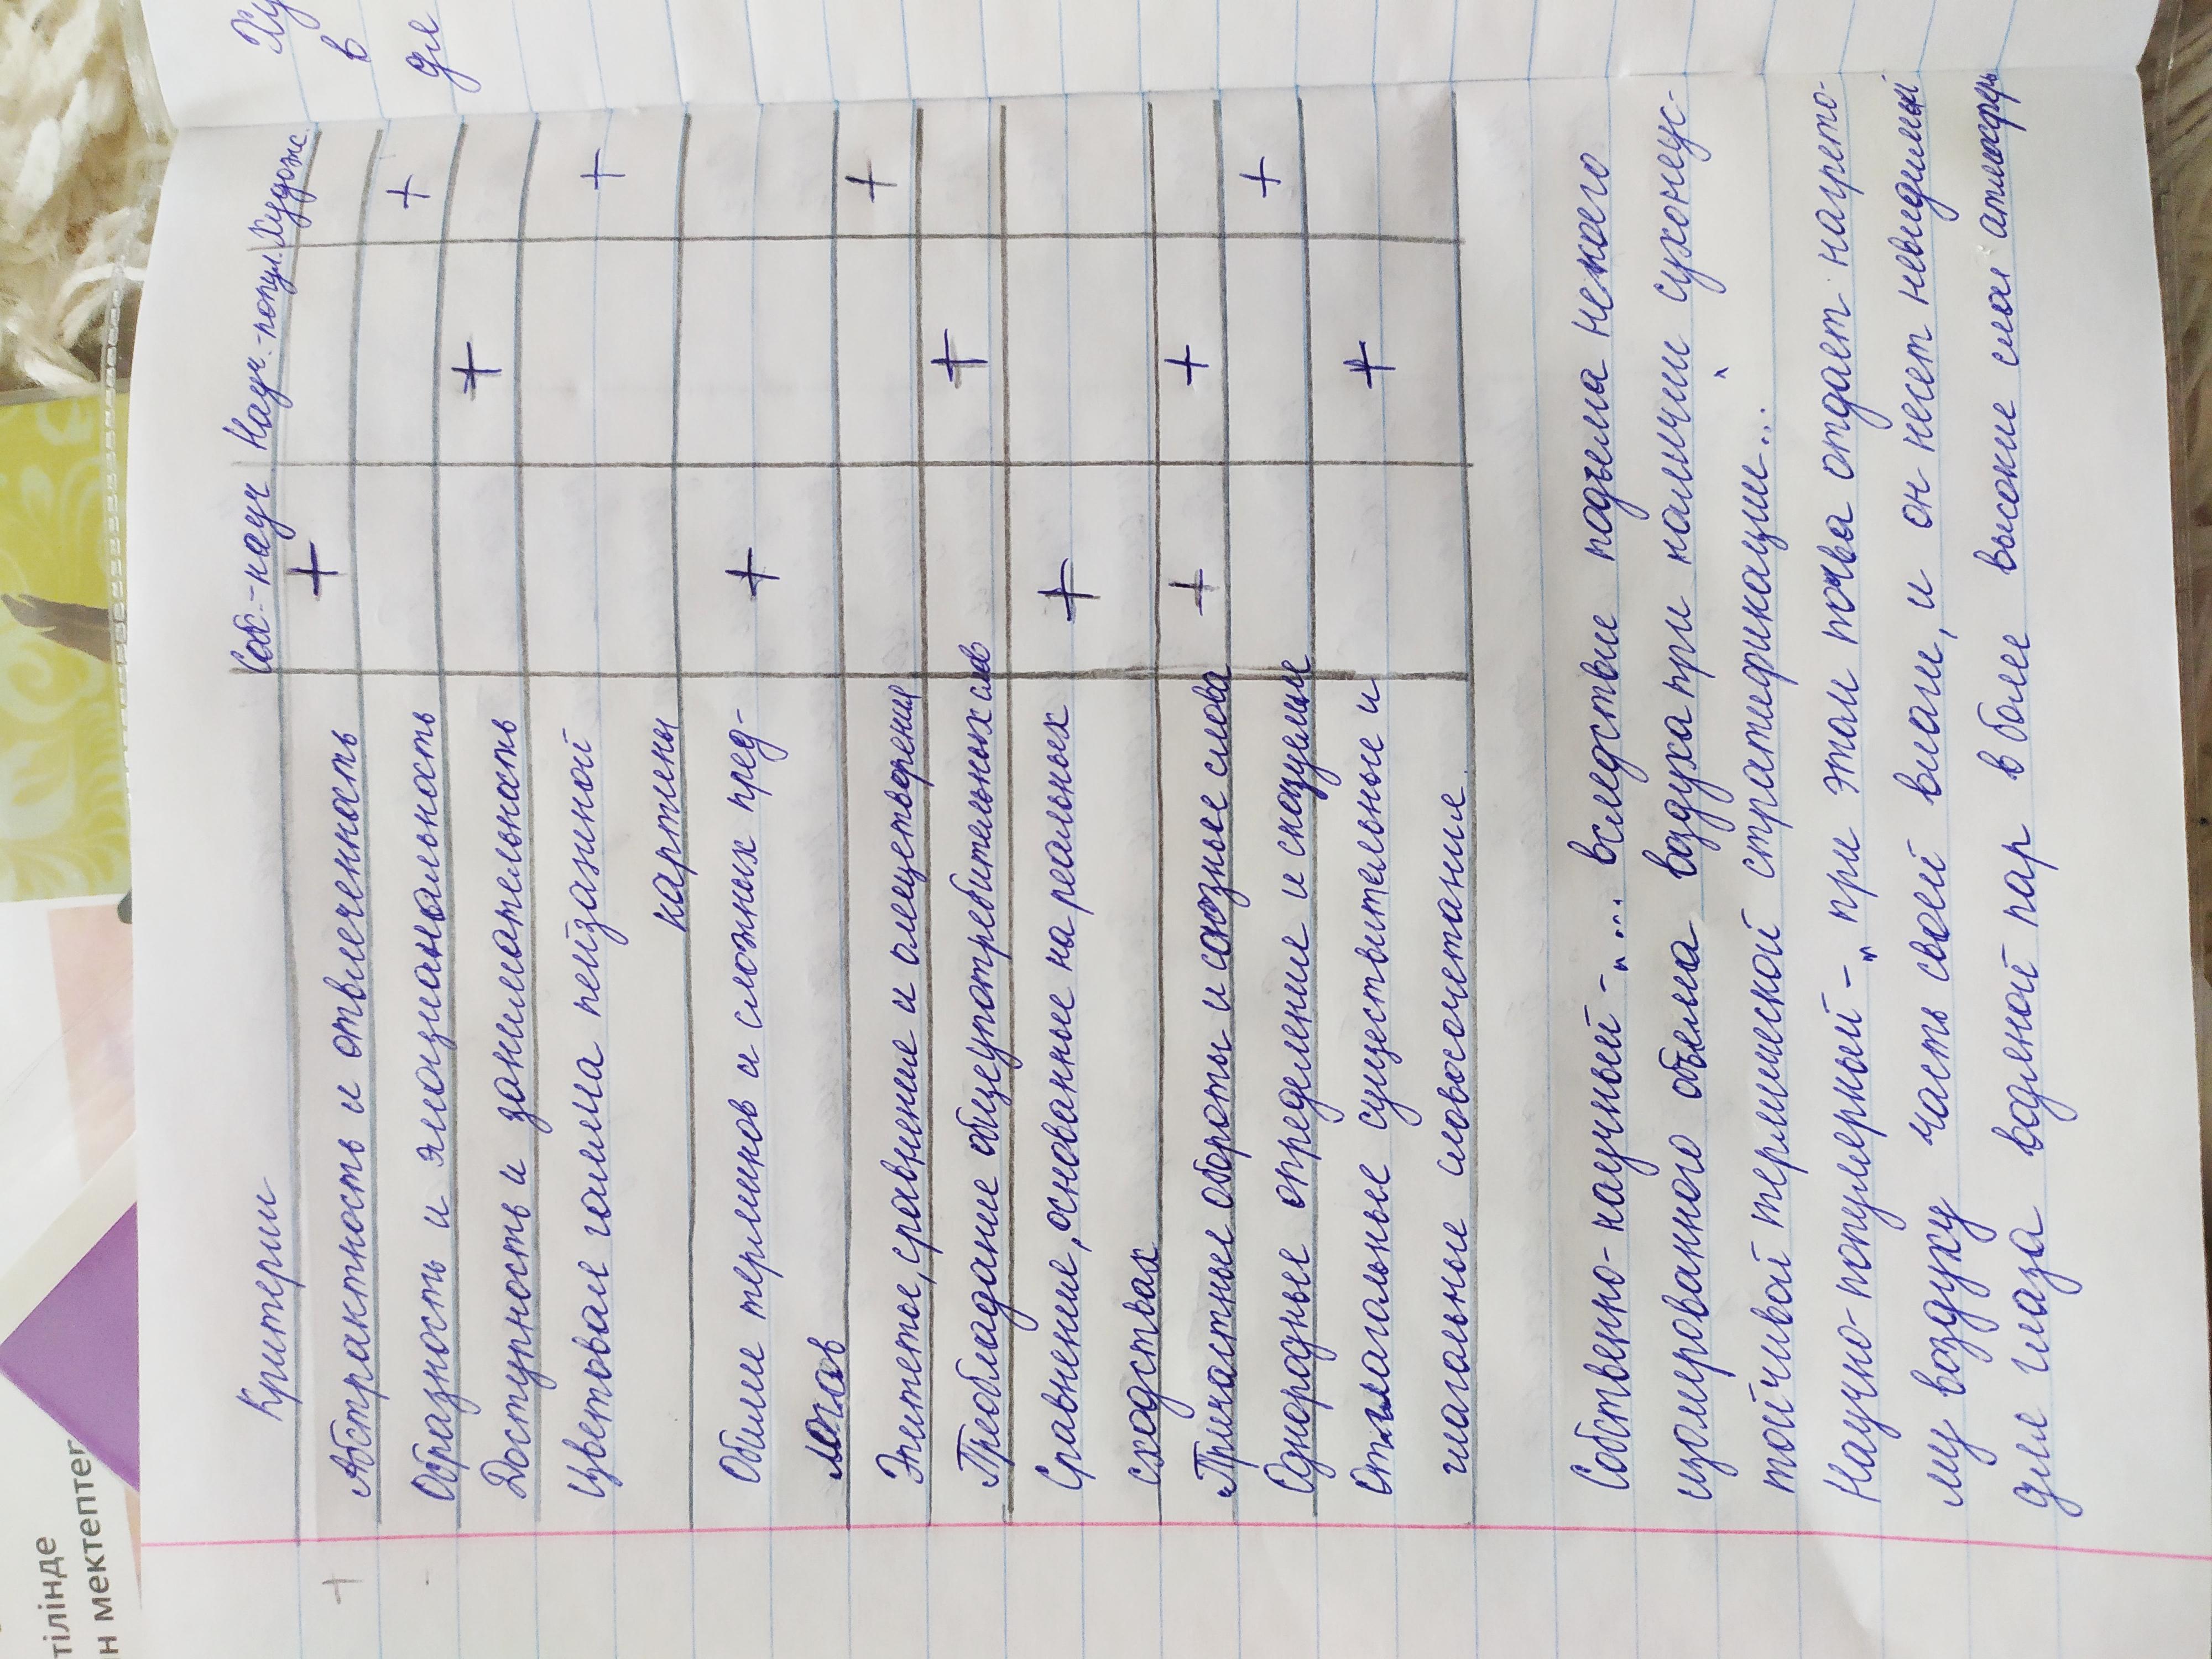 Критерии Соб.-науч Науч.-попул. Худож.
Абстрактность и отвлеченность +
Образность и эмоциональность +
Доступность и занимательность +
Цветовая гамма пейзажной +
картины
Обилие терминов и сложных пред- +
логов
Эпитеты, сравнения и олицетворения +
Преобладание общеупотребительных слов +
Сравнение, основанные на реальных +
сходствах
Причастные обороты и союзные слова + +
Однородные определение и сказуемые +
Отглагольные существительные и +
глагольные словосочетание.
Собственно-научный - „... вследствие подъема некого
изолированного объема воздуха при наличии сухонеус-
тойчивой термической стратификации...“
Научно-популярный - „при этом почва отдает нагрето-
му воздуху часть своей влаги, и он несет невидимый
для глаза водяной пар в более высокие слои атмосферы
Ху
в
для
тілінде
н мектептег